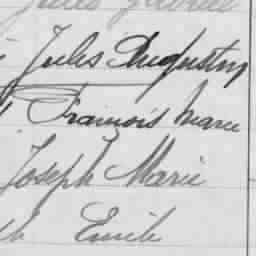 Jules Augustin
François Marie
Joseph Marie
Emile